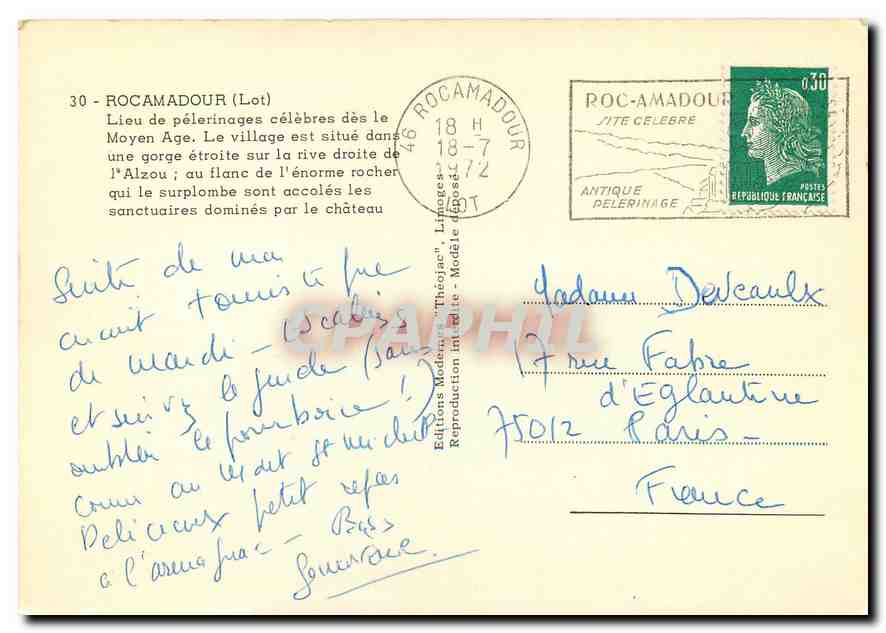 30 - ROCAMADOUR (Lot)
Lieu de pélerinages célèbres dès le
Moyen Age. Le village est situé dans
une gorge étroite sur la rive droite de
l'Alzou ; au flanc de l'énorme rocher
qui le surplombe sont accolés les
sanctuaires dominés par le château
46 ROCAMADOUR
18 H
18-7
1972
LOT
ROC-AMADOUR
SITE CELEBRE
ANTIQUE
PELERINAGE
0,30
POSTES
REPUBLIQUE FRANÇAISE
Editions Modernes "Théojac", Limoges
Reproduction interdite - Modèle déposé
CPAPHIL
Suite de ma
circuit touristique
de mardi - escaliers
et suivez le guide (sans
oublier le pourboire !)
comme au Mont St Michel
Délicieux petit repas
à l'armagnac - Bises
Madame Deveaulx
17 rue Fabre
d'Eglantine
75012 Paris -
France